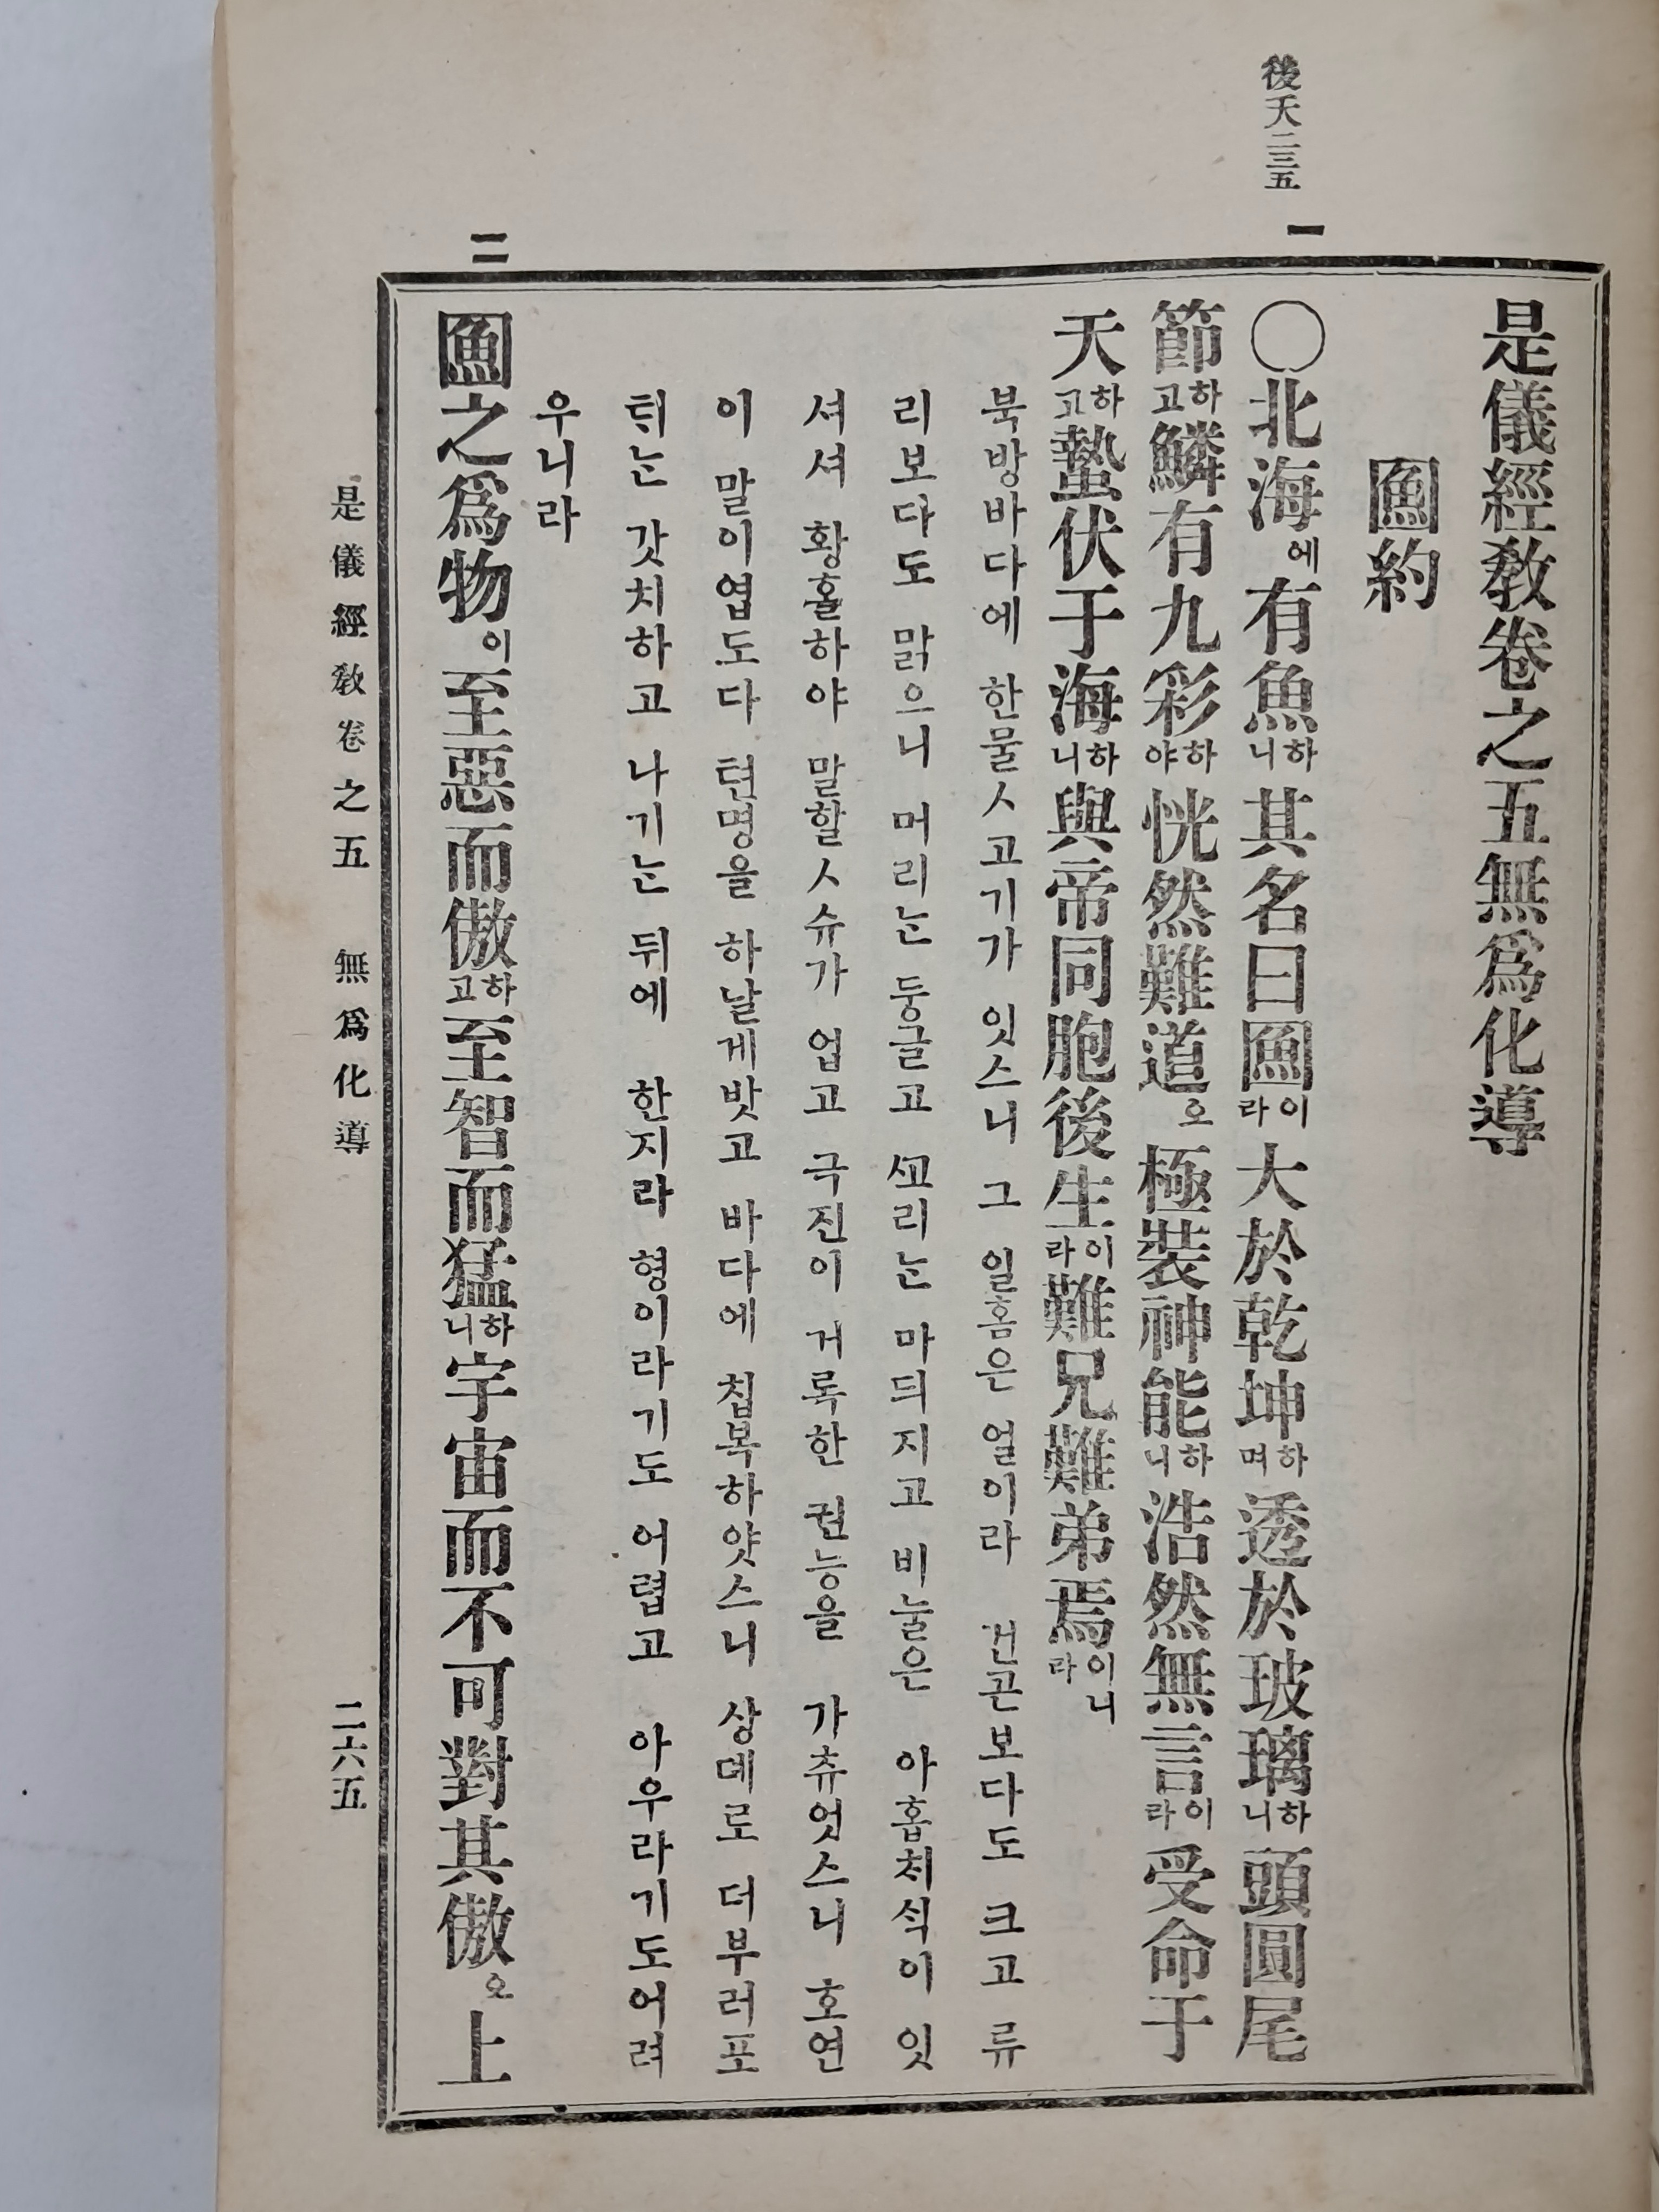 後天二三五
一
是儀經敎卷之五無爲化導
約
〇北海에有魚하니其名曰이라大於乾坤하며透於玻璃하니頭圓尾
節하고鱗有九彩하야恍然難道오極裝神能하니浩然無言이라受命于
天하고蟄伏于海하니與帝同胞後生이라難兄難弟焉이니라
북방바다에 한물ㅅ고기가 잇스니 그 일홈은 얼이라 건곤보다도 크고 류
리보다도 맑으니 머리ᄂᆞᆫ 둥글고 ᄭᅩ리ᄂᆞᆫ 마듸지고 비눌은 아홉체식이 잇
셔셔 황홀하야 말할ㅅ슈가 업고 극진이 거룩한 권능을 가츄엇스니 호연
이 말이업도다 텬명을 하날게밧고 바다에 칩복하얏스니 상뎨로 더부러포
ᄐᆡᄂᆞᆫ 갓치하고 나기ᄂᆞᆫ 뒤에 한지라 형이라기도 어렵고 아우라기도어려
우니라
二
之爲物이至惡而傲하고至智而猛하니宇宙而不可對其傲오上
是儀經敎卷之五 無爲化導 二六五